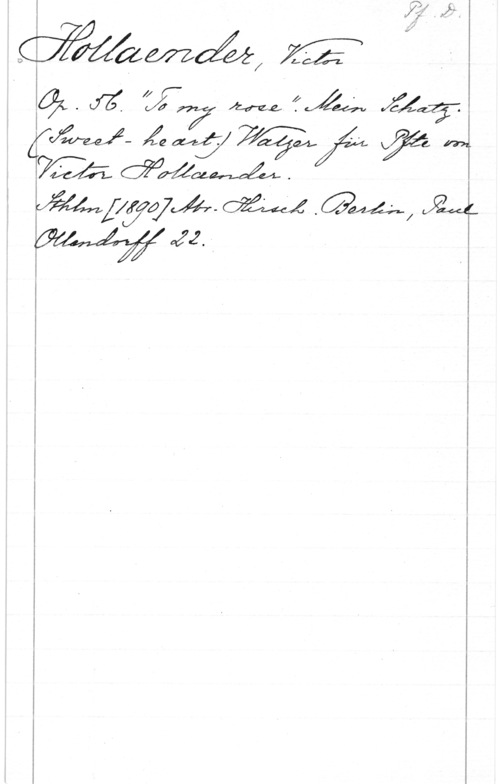 Pf. D.
Hollaender, Victor
Op. 56. "To my rose". Mein Schatz.
(Sweet-heart.) Walzer für Pfte von
Victor Hollaender.
Sthlm [1890] Abr. Hirsch. Berlin, Paul
Ollendorff 22.